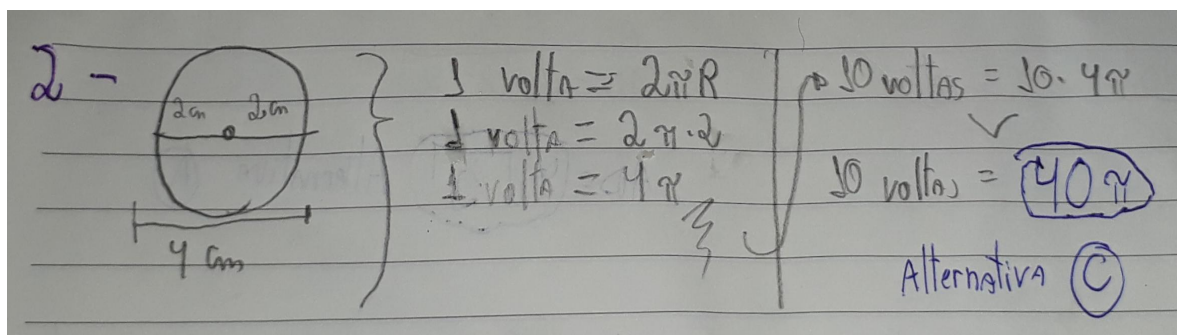 2 -
2cm 2cm
4 cm
1 volta = 2πR
1 volta = 2π.2
1 volta = 4π
10 voltas = 10.4π
10 voltas = 40π
Alternativa C